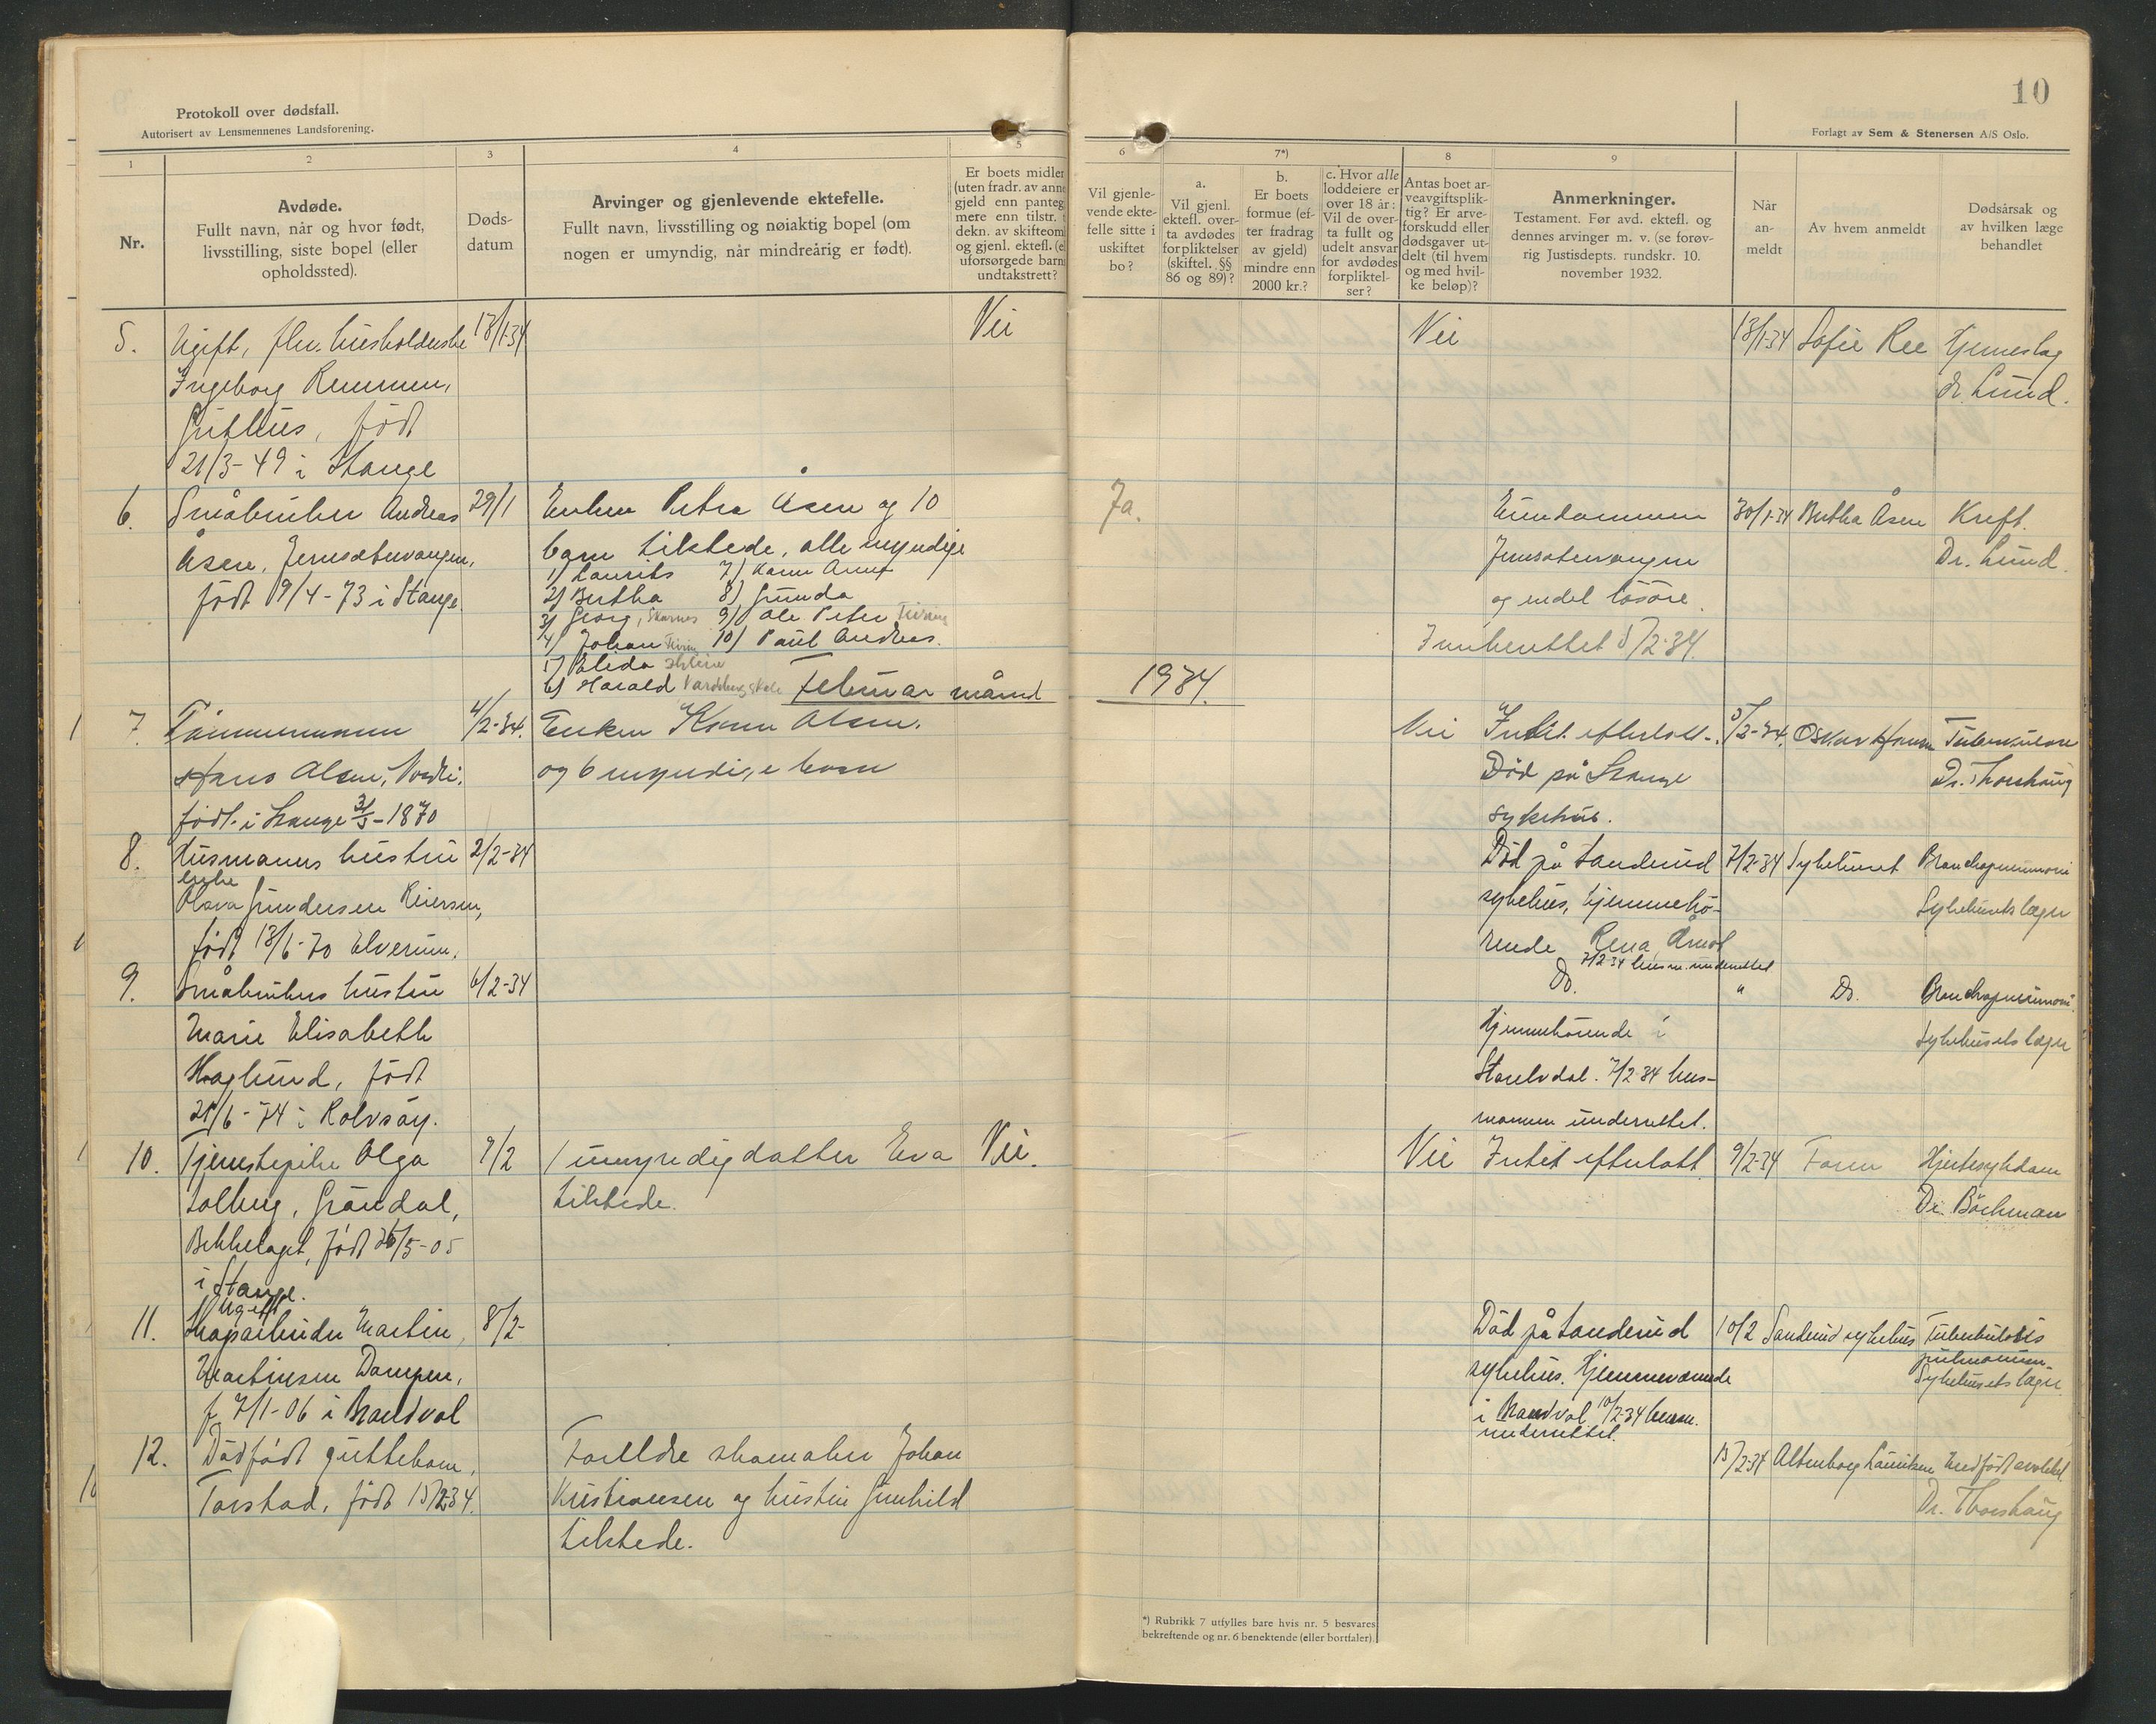 Protokoll over dødsfall.
Autorisert av Lensmennenes Landsforening.
1
2
3
4
5
Nr.
Avdøde.
Fullt navn, når og hvor født,
livsstilling, siste bopel (eller
opholdssted).
Døds-
datum
Arvinger og gjenlevende ektefelle.
Fullt navn, livsstilling og nøiaktig bopel (om
nogen er umyndig, når mindreårig er født).
Er boets midler
(uten fradr. av ann
gjeld enn panteg
mere enn tilstr.
dekn. av skifteom
og gjenl. ektefl. (e
uforsørgede barn
undtakstrett?
5.
Ugift, fhv. husholderske
Ingeborg Remmen,
født
21/3-49 i Stange
13/1-34
Nei
6.
Småbruker Andreas
Åsen, Jernsætervangen,
født 19/4-73 i Stange
29/1
Enken Petra Åsen og 10
barn tilstede, alle myndige
1) Laurits 7) Karen Anna
2) Bertha 8) Gunda
3) Georg, Skarnes 9) Ole Peter
4) Johan 10) Paul Andreas.
5) Elida
6) Harald
Februar måned
7.
Tømmermann
Hans Olsen,
født i Stange 3/5-1870
4/2-34.
Enken Karen Olsen.
og 6 myndige barn
8.
Husmanns hustru
enke
Olava Gundersen Reiersen,
født 13/6-70 Elverum.
2/2-34
9.
Småbrukers hustru
Marie Elisabeth
Haglund, født
21/6-74 i Rolvsøy.
6/2-34
10.
Tjenestepike Olga
Solberg, Grøndal,
Bekkelaget, født 26/5-05
i Stange.
7/2
1 umyndig datter Eva
tilstede.
Nei.
11.
Ugift
Skogarbeider Martin
Martinsen Dampen,
f. 7/1-06 i Brandval
8/2-
12.
Dødfødt guttebarn,
Torstad, født 15/2-34.
Foreldre skomaker Johan
Kristiansen og hustru Gunhild
tilstede.
10
Forlagt av Sem & Stenersen A/S Oslo.
6
7*)
8
9
Vil gjenle-
vende ekte-
felle sitte i
uskiftet
bo?
a.
Vil gjenl.
ektefl. over-
ta avdødes
forpliktelser
(skiftel. §§
86 og 89)?
b.
Er boets
formue (ef-
ter fradrag
av gjeld)
mindre enn
2000 kr.?
c. Hvor alle
loddeiere er
over 18 år:
Vil de over-
ta fullt og
udelt ansvar
for avdødes
forpliktel-
ser?
Antas boet ar-
veavgiftsplik-
tig? Er arve-
forskudd eller
dødsgaver ut-
delt (til hvem
og med hvil-
ke beløp)?
Anmerkninger.
Testament. Før avd. ektefl. og
dennes arvinger m. v. (se forøv-
rig Justisdepts. rundskr. 10.
november 1932.
Når
an-
meldt
Av hvem anmeldt
Dødsårsak og
av hvilken læge
behandlet
Nei
13/1-34
Sofie Ree
Hjerneslag
dr. Lund.
Ja.
Eiendommen
Jernsætervangen
og endel løsøre.
Innberettet 5/2-34.
30/1-34
Bertha Åsen
Kreft.
Dr. Lund.
1934.
Nei
Intet efterlatt.
Død på Stange
sykehus.
5/2-34.
Oskar Hansen
Tuberkulose
Dr. Thorshaug
Død på Sanderud
sykehus, hjemmehø-
rende Rena, Åmot
7/2-34 husm. underrettet
7/2-34
Sykehuset
Bronchopneumoni
Sykehusets læger
Do.
Hjemmehørende i
Storelvdal. 7/2-34 hus-
mannen underrettet.
"
Do.
Bronchopneumoni.
Sykehusets læger
Nei
Intet efterlatt
9/2-34
Faren
Hjertesykdom
Dr. Bøckman
Død på Sanderud
sykehus. Hjemmeværende
i Brandval 10/2-34 lensm.
underrettet.
10/2
Sanderud sykehus
Tuberkulosis
pulmonum.
Sykehusets læger.
15/2-34
Altenborg Lauritsen
Medfødt
Dr. Thorshaug
*) Rubrikk 7 utfylles bare hvis nr. 5 besvares
bekreftende og nr. 6 benektende (eller bortfaler).